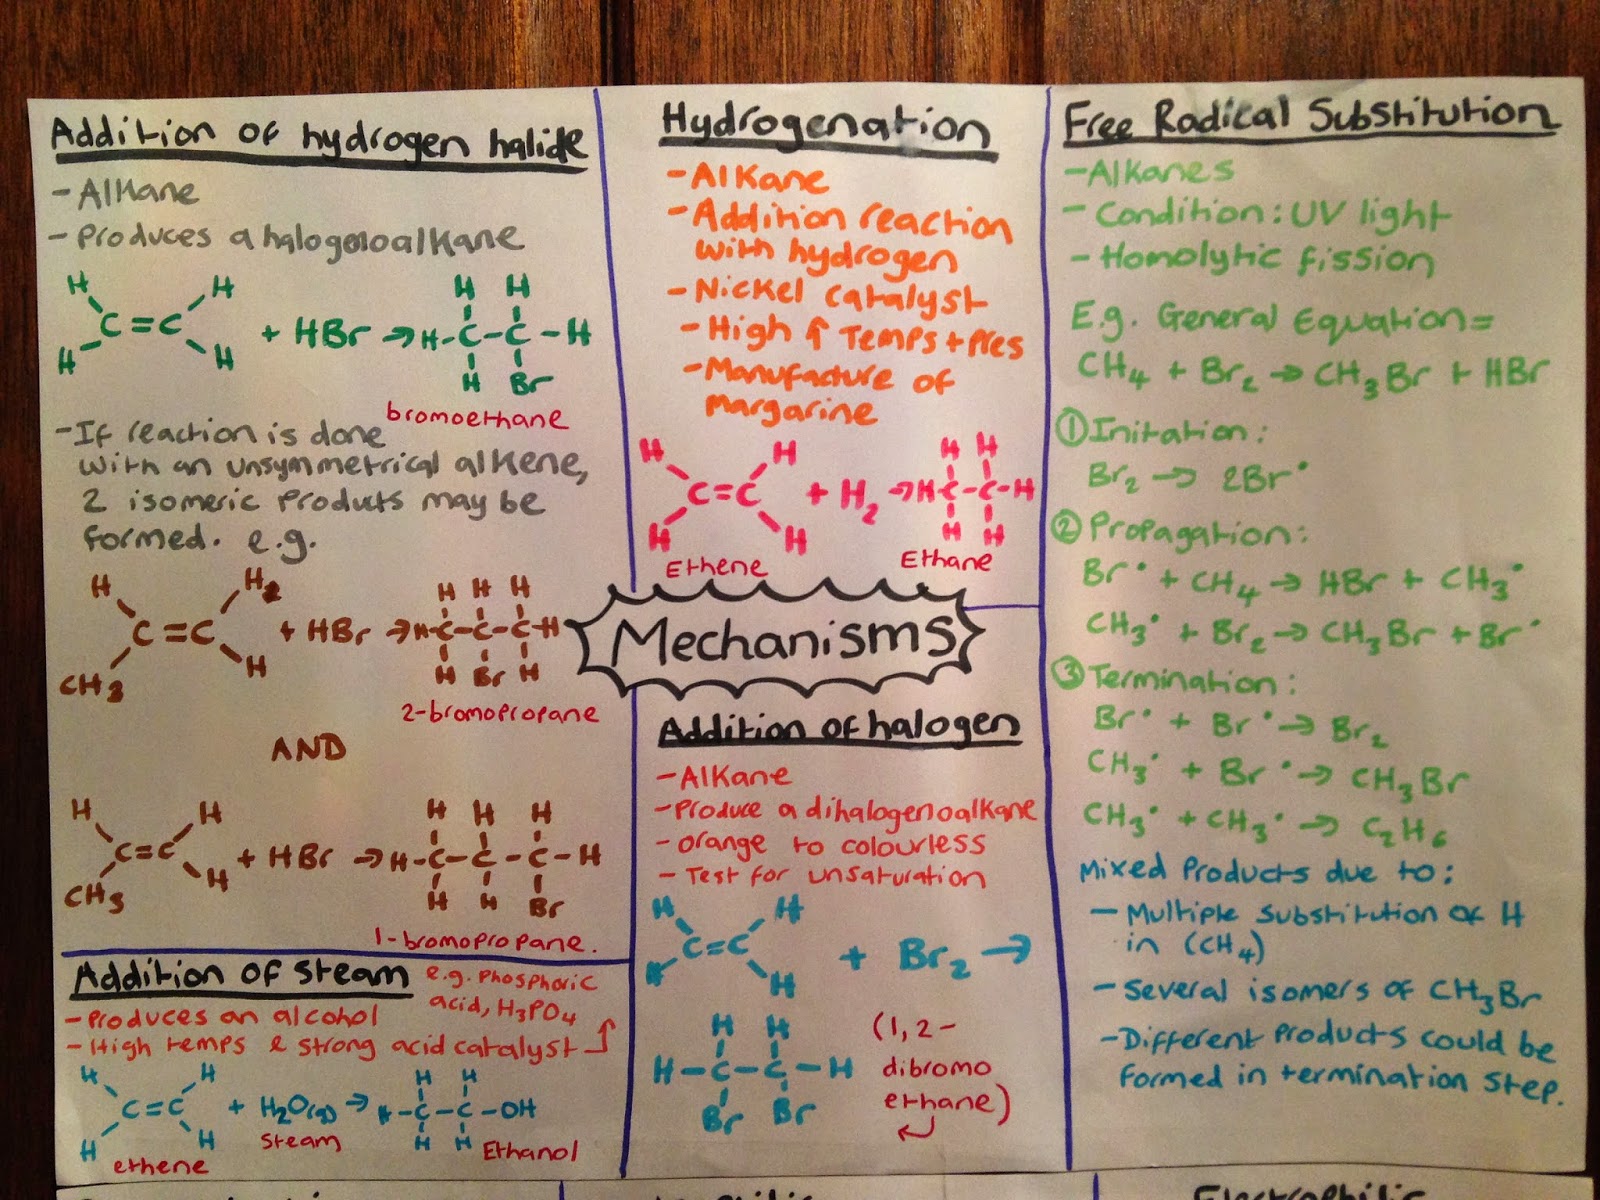 Addition of hydrogen halide
- Alkane
- Produces a halogenoalkane
H H
C=C
H H
+ HBr →
H H
H-C-C-H
H Br
bromoethane
- If reaction is done
with an unsymmetrical alkene,
2 isomeric products may be
formed. e.g.
H H2
C=C
CH3 H
+ HBr →
H H H
H-C-C-C-H
H Br H
2-bromopropane
AND
H H
C=C
CH3 H
+ HBr →
H H H
H-C-C-C-H
H H Br
1-bromopropane.
Addition of steam
e.g. phosphoric
acid, H3PO4
- Produces an alcohol
- High temps & strong acid catalyst
H H
C=C
H H
ethene
+ H2O(g) →
steam
H H
H-C-C-OH
H H
Ethanol
Hydrogenation
- Alkane
- Addition reaction
with hydrogen
- Nickel catalyst
- High ↑ Temps + Pres
- Manufacture of
margarine
H H
C=C
H H
Ethene
+ H2 →
H H
H-C-C-H
H H
Ethane
Mechanisms
Addition of halogen
- Alkane
- Produce a dihalogenoalkane
- orange to colourless
- Test for unsaturation
H H
C=C
H H
+ Br2 →
H H
H-C-C-H
Br Br
(1,2-
dibromo
ethane)
Free Radical Substitution
- Alkanes
- Condition: UV light
- Homolytic fission
E.g. General Equation=
CH4 + Br2 → CH3Br + HBr
① Initation:
Br2 → 2Br•
② Propagation:
Br• + CH4 → HBr + CH3•
CH3• + Br2 → CH3Br + Br•
③ Termination:
Br• + Br• → Br2
CH3• + Br• → CH3Br
CH3• + CH3• → C2H6
Mixed Products due to:
- Multiple substitution of H
in (CH4)
- Several isomers of CH3Br
- Different products could be
formed in termination step.